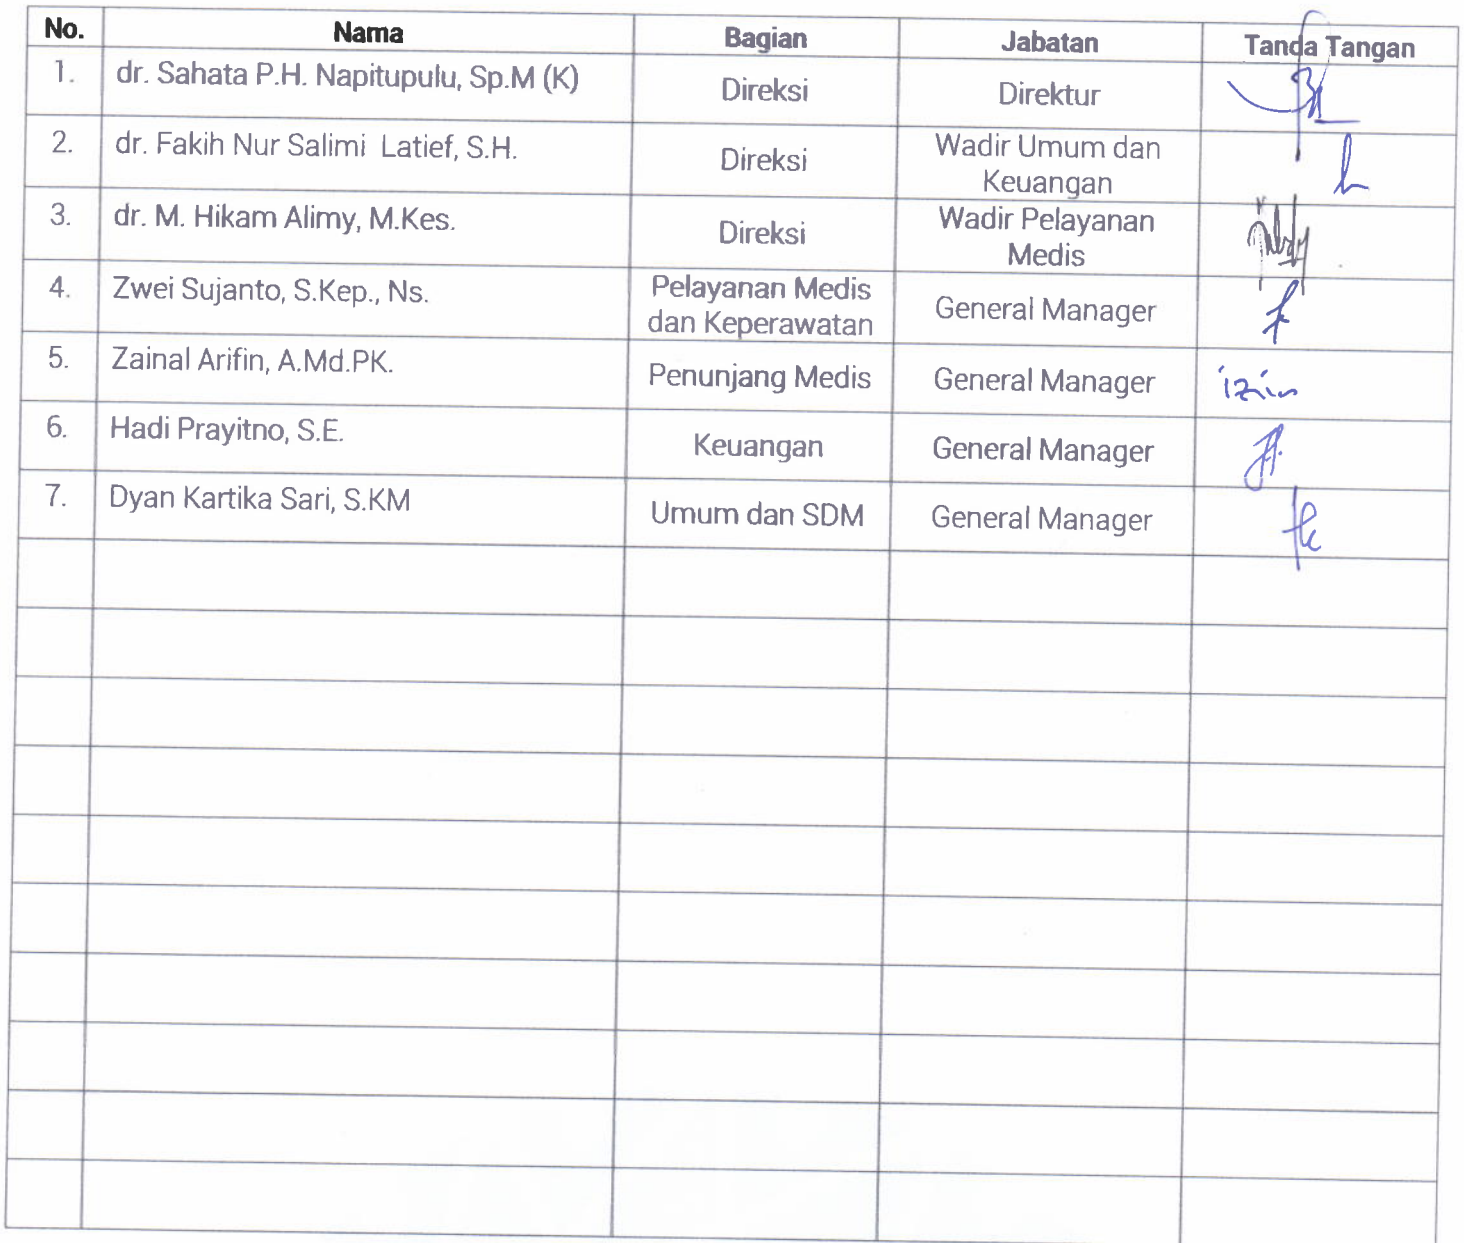 No. Nama Bagian Jabatan Tanda Tangan
1. dr. Sahata P.H. Napitupulu, Sp.M (K) Direksi Direktur
2. dr. Fakih Nur Salimi Latief, S.H. Direksi Wadir Umum dan
Keuangan
3. dr. M. Hikam Alimy, M.Kes. Direksi Wadir Pelayanan
Medis
4. Zwei Sujanto, S.Kep., Ns. Pelayanan Medis
dan Keperawatan General Manager
5. Zainal Arifin, A.Md.PK. Penunjang Medis General Manager izin
6. Hadi Prayitno, S.E. Keuangan General Manager
7. Dyan Kartika Sari, S.KM Umum dan SDM General Manager